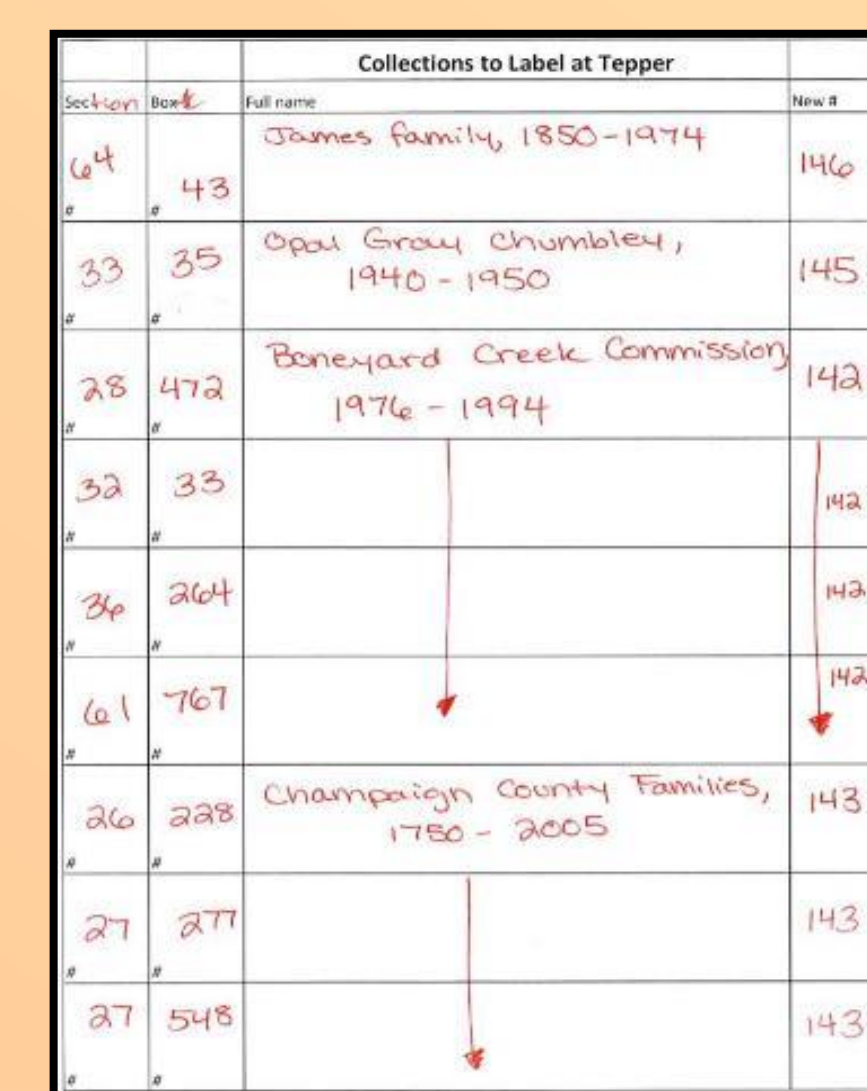 Collections to Label at Tepper
Section Box # Full name New #
64 # 43 # James family, 1850-1974 146
33 # 35 # Opal Gray Chumbley,
1940 - 1950 145
28 # 472 # Boneyard Creek Commission,
1976 - 1994 142
32 # 33 # 142
36 # 264 # 142
61 # 767 # 142
26 # 228 # Champaign County Families,
1750 - 2005 143
27 # 277 # 143
27 # 548 # 143